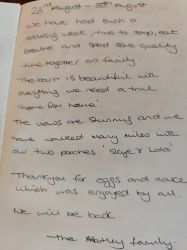 23rd August - 30th August
We have had such a
relaxing week, time to stop, eat
breathe and spend some quality
time together as family.
The barn is beautiful with
everything we need a true
'home for home'.
The views are stunning and we
have walked many miles with
our two pooches
Thankyou for eggs and cake
which was enjoyed by all.
We will be back.
- The family.